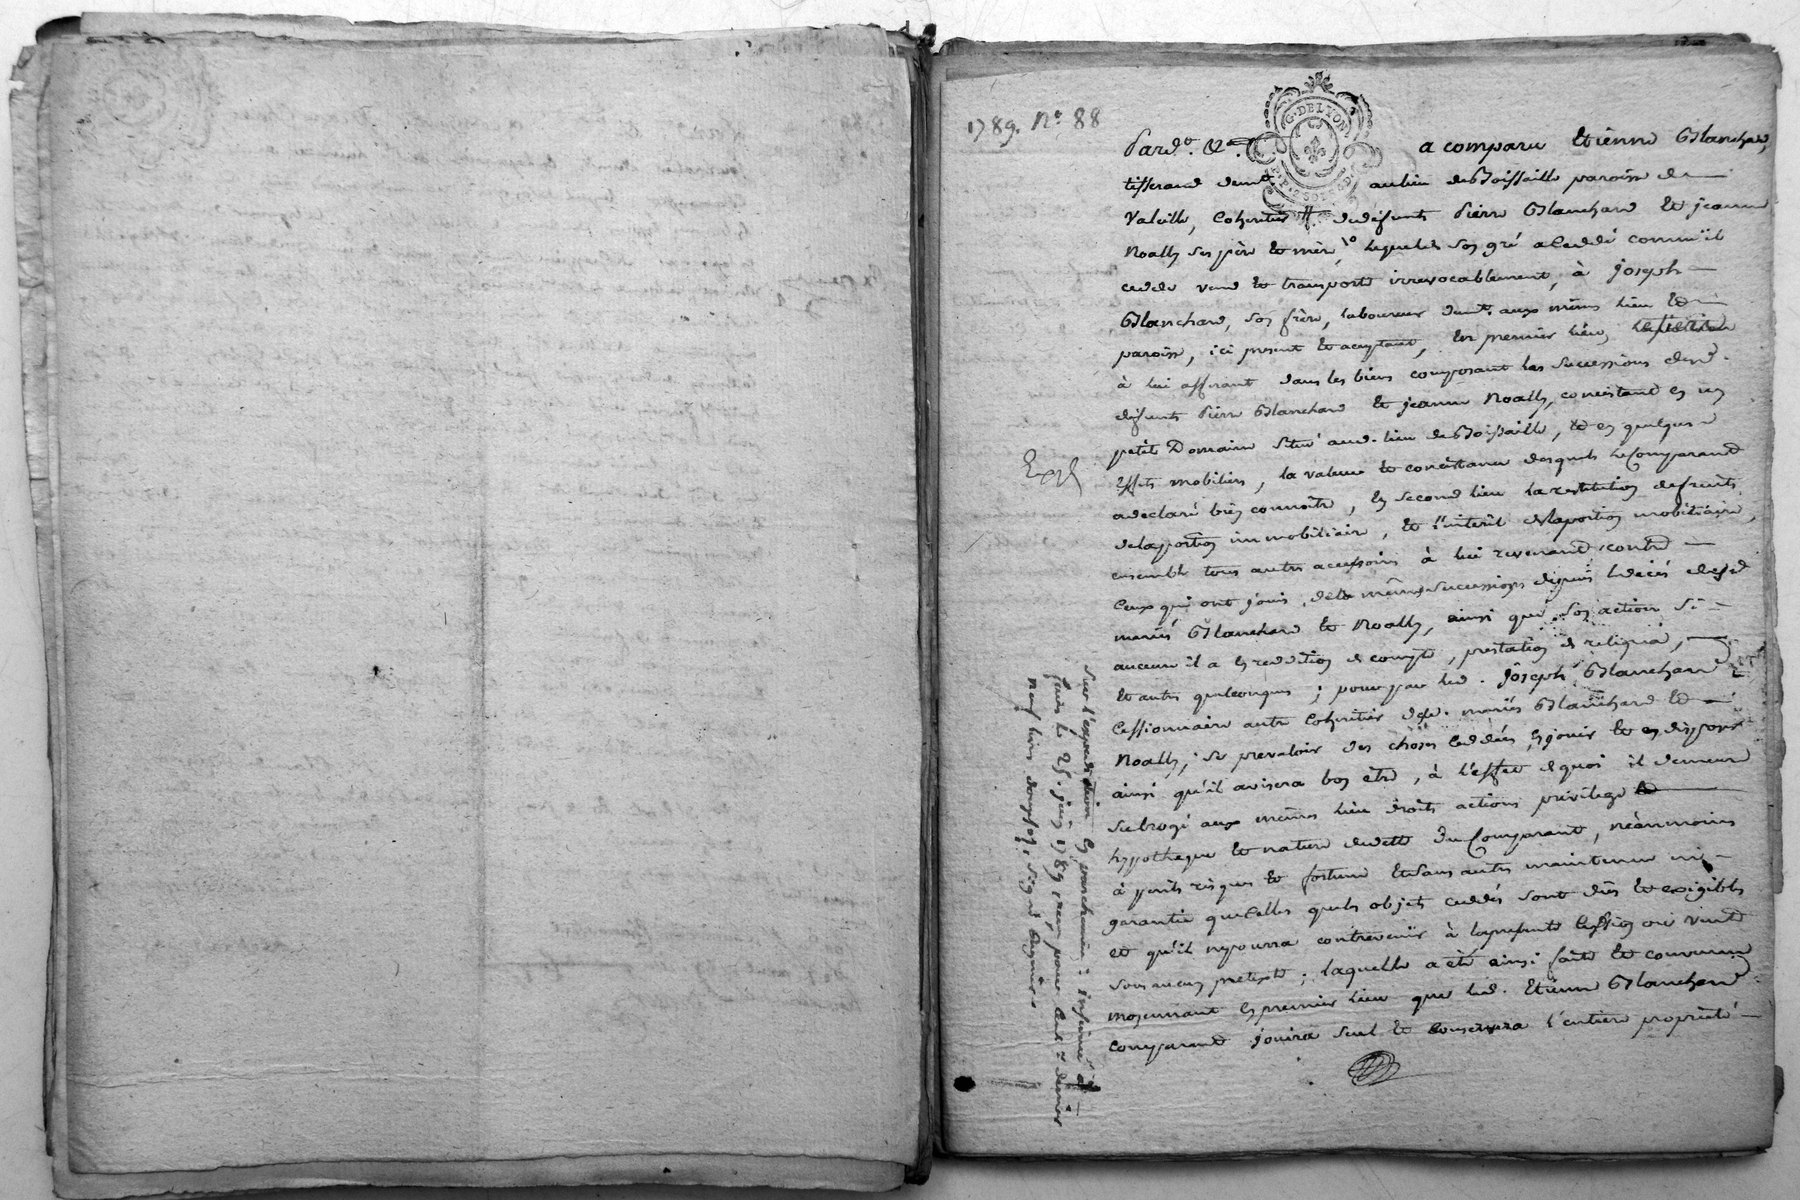 1789. N.º 88
G. DE LYON
Pard.t &a. a comparu Etienne Blanchard,
tisserand demt. au lieu de Boissaille paroisse de
Valeille, coheritier de defunts Pierre Blanchard et jeanne
Noally ses père et mère, lequel de son gré a ceddé comm'il
cedde vend et transporte irrevocablement, à joseph
Blanchard, son frère, laboureur demt. aux mêmes lieu et
paroisse, ici present et acceptant, en premier lieu,
à lui afferant dans les biens composant les successions desd.
defunts Pierre Blanchard et jeanne Noally, consistant en un
petit Domaine situé aud. lieu de Boissaille, et en quelques
effets mobiliers, la valeur et consistance desquels le Comparant
a declaré bien connoitre, en second lieu la restitution de fruits
de la portion immobiliaire, et l'interêt de la portion mobiliaire,
ensemble tous autres accessoires à lui revenant contre
Ceux qui ont joui de la même succession depuis le décés desd.
mariés Blanchard et Noally, ainsi que son action si
aucune il a en reddition de compte, prestation de reliqua,
et autres quelconques ; pour par led. joseph Blanchard
Cessionnaire autre Coheritier desd. mariés Blanchard et
Noally, se prevaloir des choses ceddées, en jouir et en disposer
ainsi qu'il avisera bon etre, à l'effet de quoi il demeure
subrogé aux mêmes lieu droits actions privilege
hypotheque et nature de dette du Comparant, néanmoins
à perils risques et fortune et sans autre maintenue ni
garantie que celles que les objets ceddés sont dûs et exigibles
et qu'il ne pourra contrevenir à la presente Cession ni vente
sous aucun pretexte ; laquelle a été ainsi faite et convenue
moyennant en premier lieu que led. Etienne Blanchard
comparant jouira seul et conservera l'entiere proprieté
Sur l'expedition en parchemin : insinué à
le 25. juin 1789, reçu pour Cent. denier
neuf livres douze sols, signé